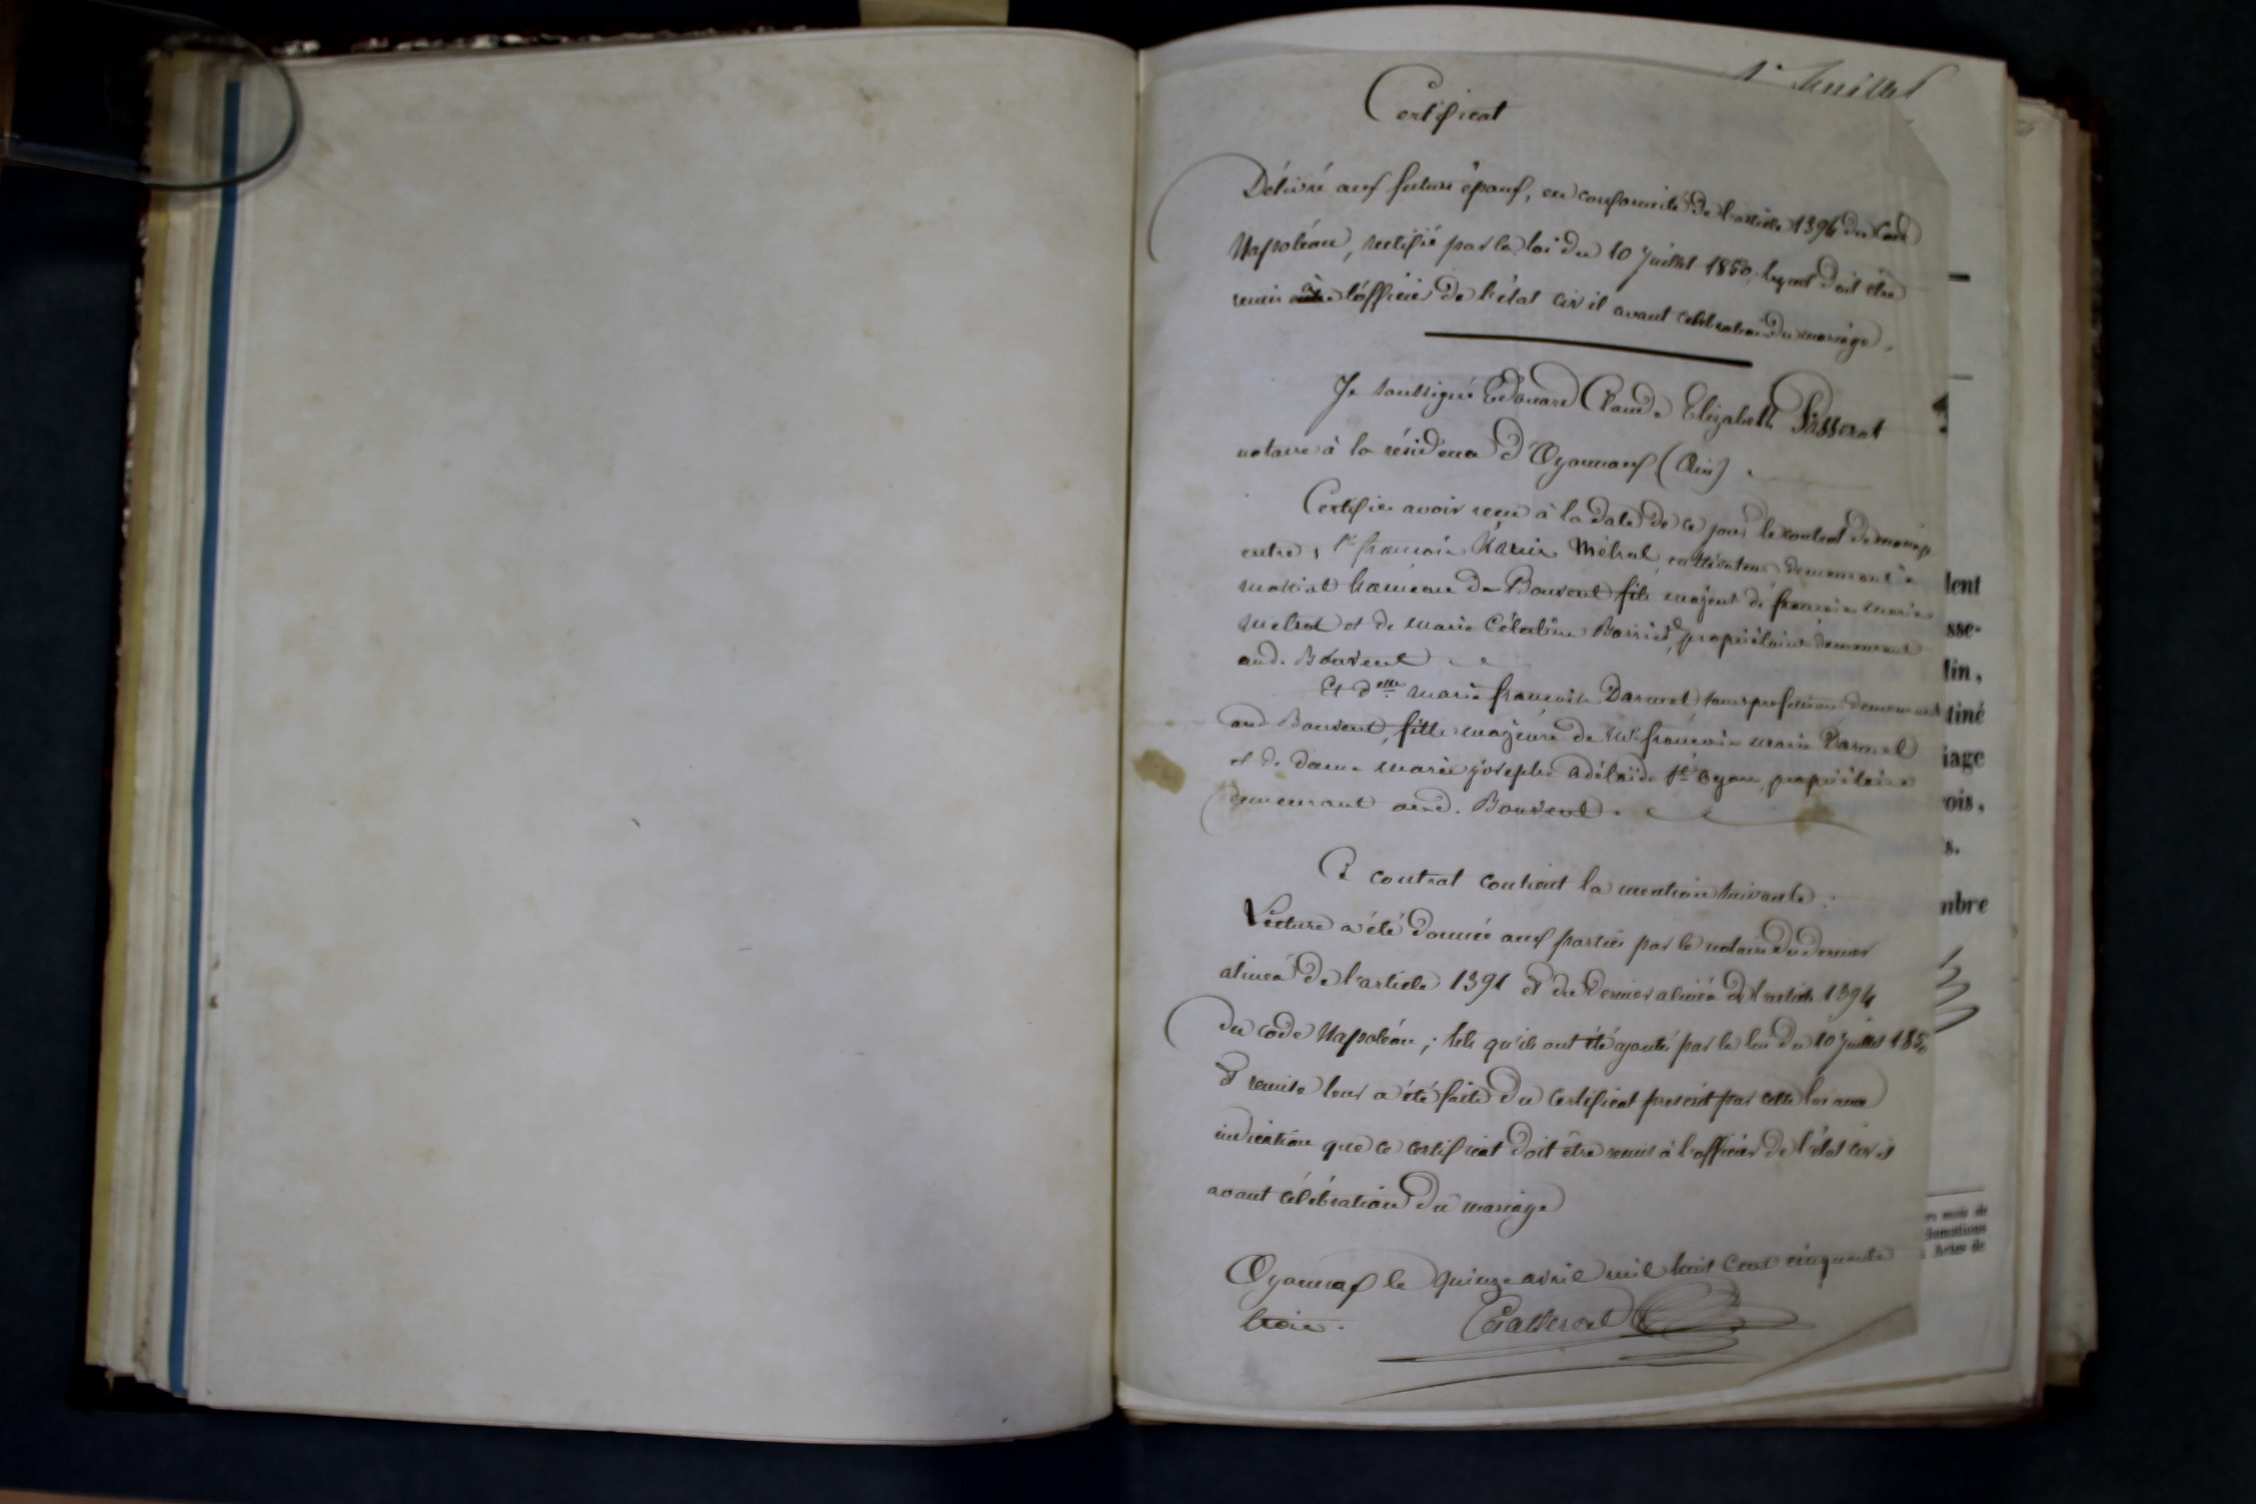 1er feuillet
Certificat
Délivré aux futurs époux, en conformité de l'article 1394 du Code
Napoléon, rectifié par la loi du 10 juillet 1850, lequel doit être
remis à l'officier de l'état civil avant célébration du mariage.
Je soussigné Edouard Claude Elizabeth Passerat
notaire à la résidence d'Oyonnax (Ain)
Certifie avoir reçu à la date de ce jour le contrat de mariage
entre, Sr françois Xavier Métral, cultivateur demeurant à
hameau de Bouvent fils majeur de françois marie
Metral et de marie Célestine propriétaires demeurant
aud. Bouvent
Et dlle marie françoise Darmet sans profession demeurant
aud Bouvent, fille majeure de françois marie Darmet
et de dame marie josephe adélaïde St Oyan, propriétaires
demeurant aud. Bouvent.
Ce contrat contient la mention suivante :
Lecture a été donnée aux parties par le notaire du dernier
alinéa de l'article 1391 et du dernier alinéa de l'article 1394
du code Napoléon ; tels qu'ils ont été ajoutés par la loi du 10 juillet 1850
et remise leur a été faite du certificat prescrit par cette loi avec
indication que ce certificat doit être remis à l'officier de l'état civil
avant célébration du mariage
Oyonnax le quinze avril mil huit cent cinquante
trois.
Passerat
lent
sse-
lin,
tiné
iage
ois,
s.
nbre
es mois de
Actes de